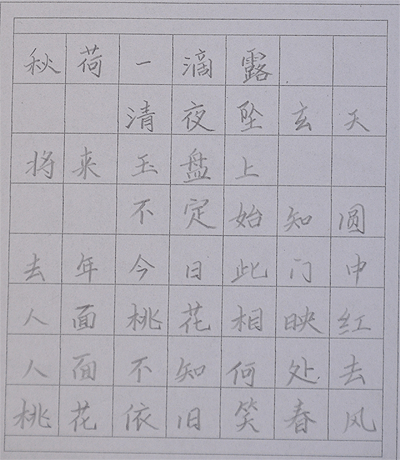 秋荷一滴露
清夜坠玄天
将来玉盘上
不定始知圆
去年今日此门中
人面桃花相映红
人面不知何处去
桃花依旧笑春风